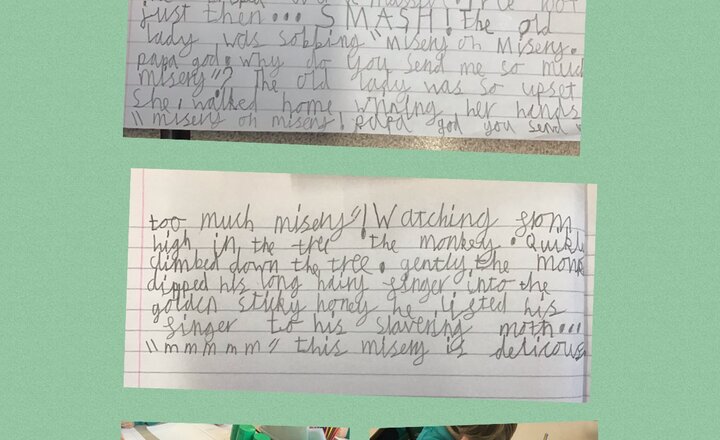 just then... SMASH! the old
lady was sobbing "misery oh misery.
papa god. why do you send me so much
misery"? The old lady was so upset
she, walked home winning her hands
"misery oh misery! papa god you send
too much misery"! Watching from
high in the tree the monkey. Quikly
climbed down the tree. gently, the monk
dipped his long hairy finger into the
golden sticky honey he lifted his
finger to his slavering moth...
"mmmmm" this misery is delicous